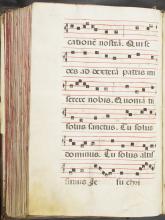 catione nostrã. Qui se
des ad dexterã patris mi
serere nobis. Quoniã tu
solus sanctus. Tu solus
dominus. Tu solus altis
simus Je su chri